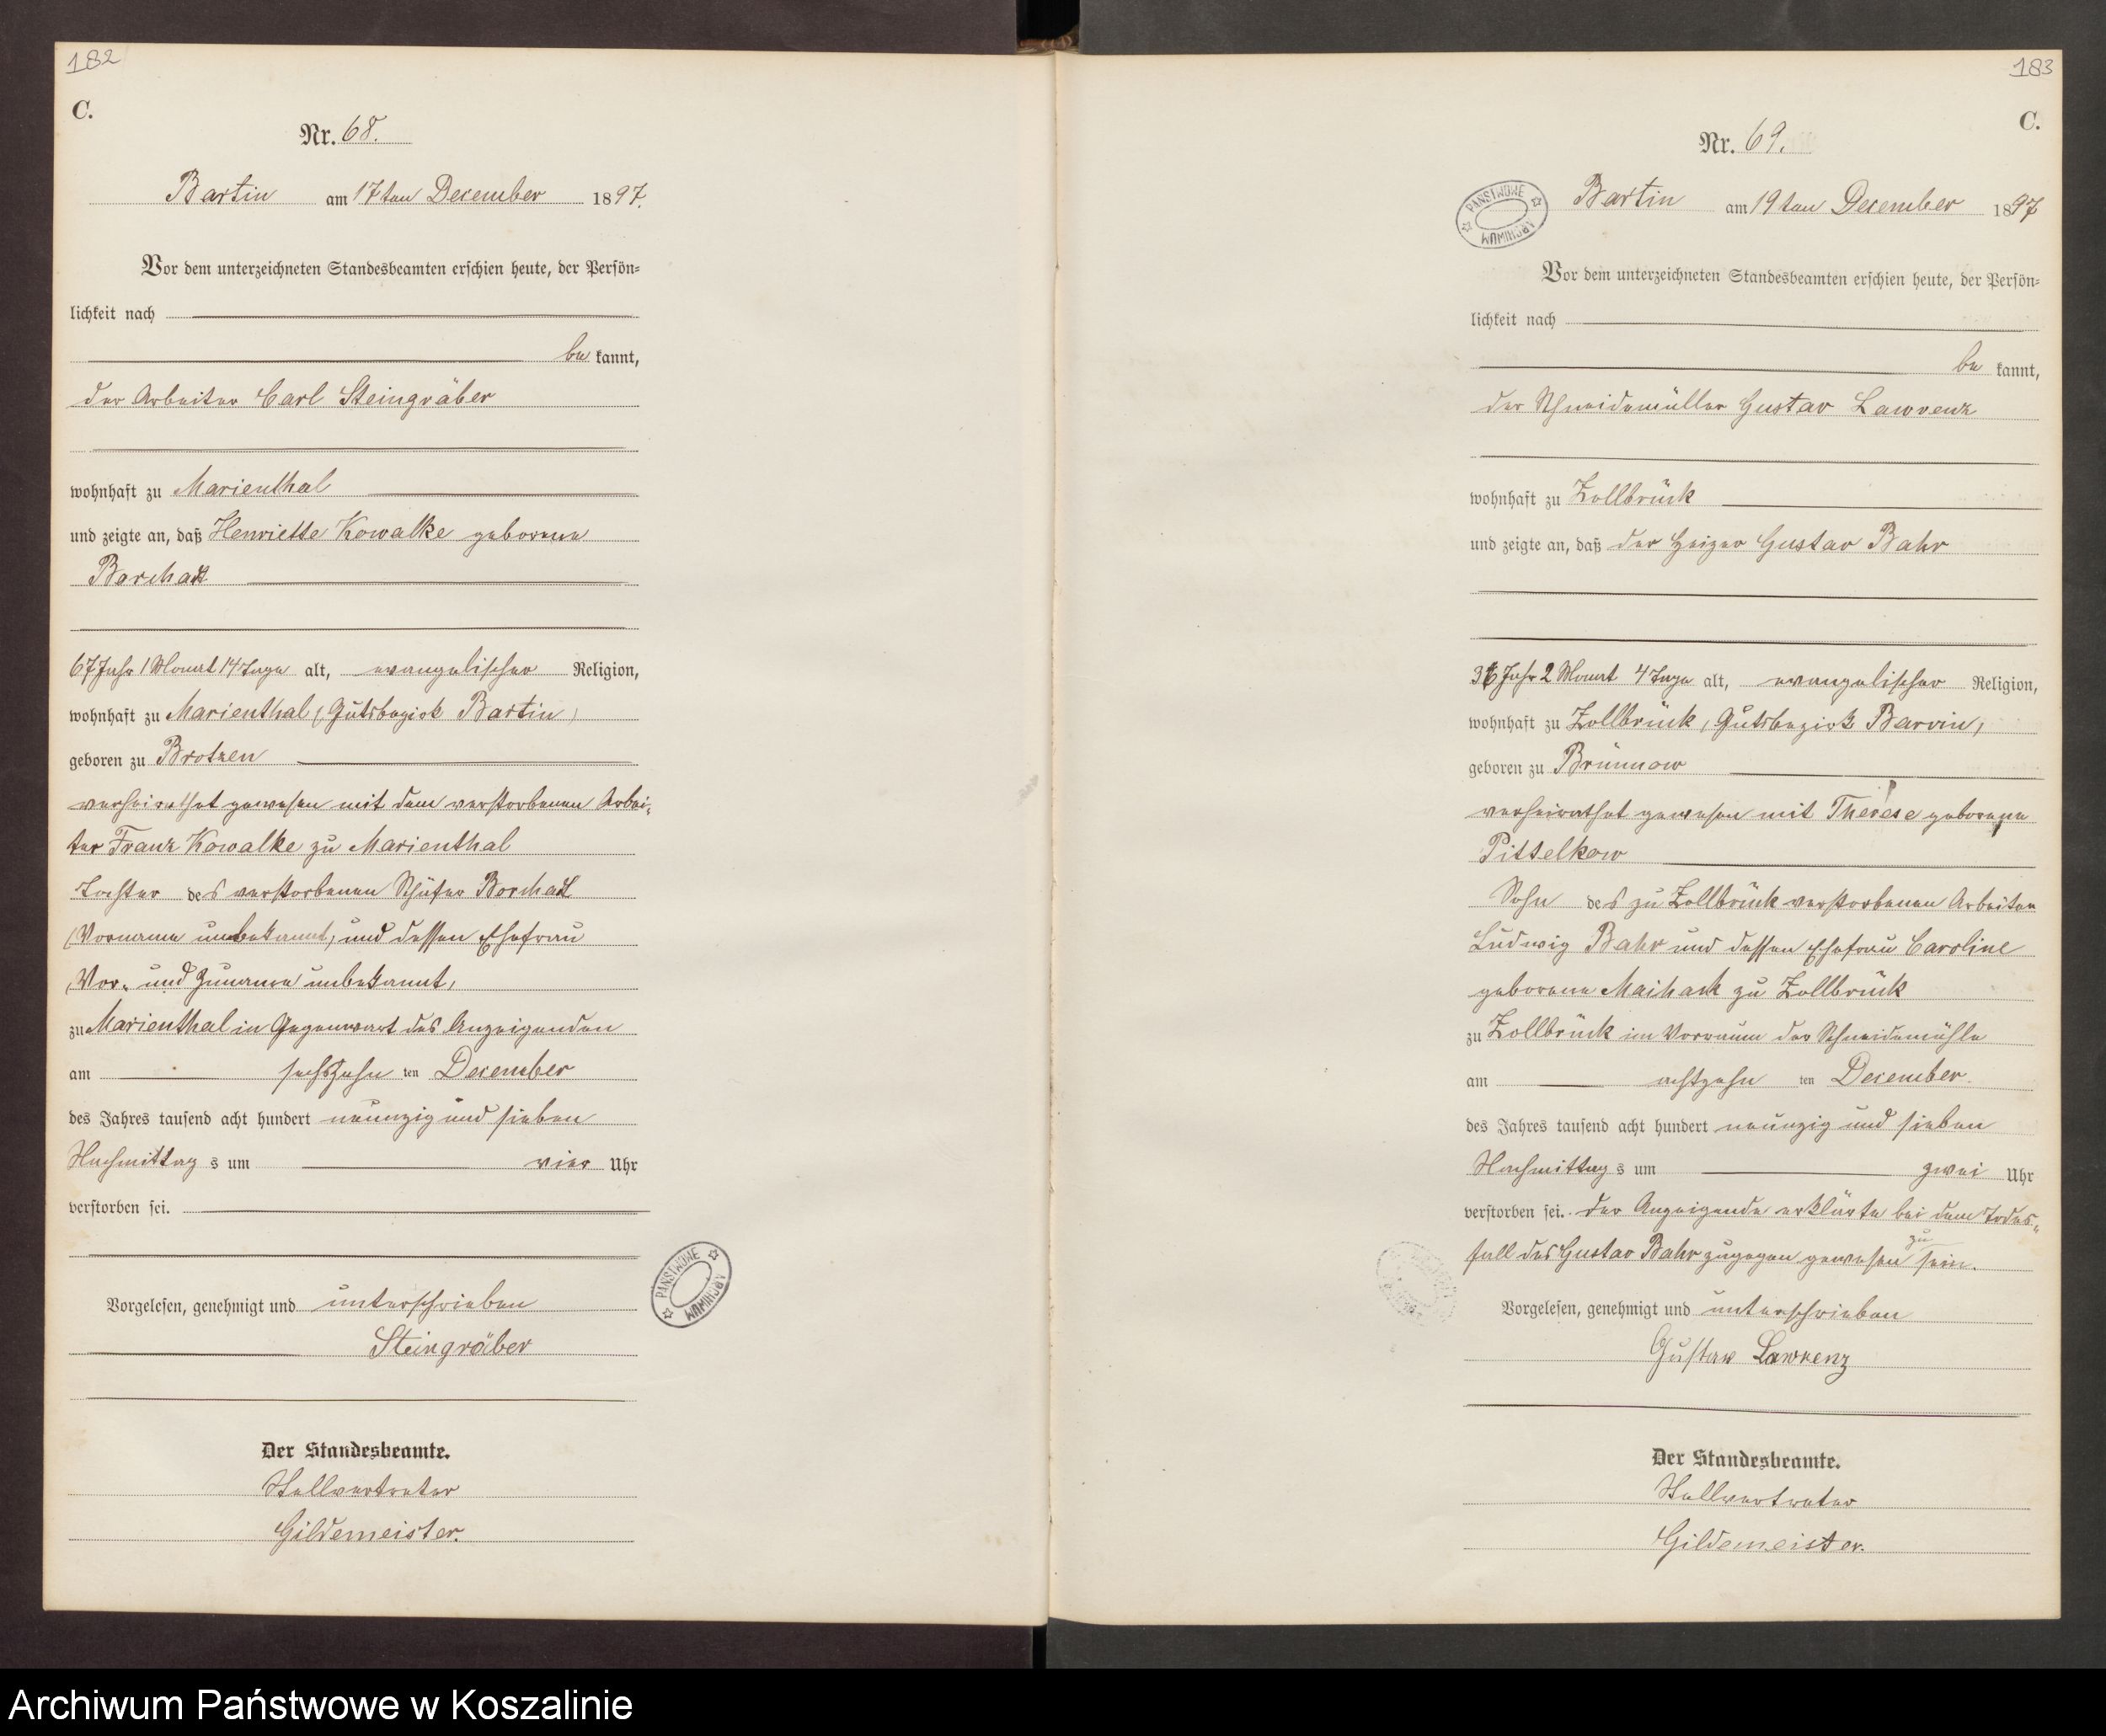 182
C.
Nr. 68.
Bartin am 17ten December 1897.
Vor dem unterzeichneten Standesbeamten erschien heute, der Persön=
lichkeit nach
be kannt,
der Arbeiter Carl Steingräber
wohnhaft zu Marienthal
und zeigte an, daß Henriette Kowalke geborene
67 Jahr 1 Monat 14 Tage alt, evangelischer Religion,
wohnhaft zu Marienthal (Gutsbezirk Bartin)
geboren zu Brotzen
verheirathet gewesen mit dem verstorbenen Arbei=
ter Franz Kowalke zu Marienthal
Tochter des verstorbenen Schäfer
(Vorname unbekannt) und dessen Ehefrau
(Vor- und Zuname unbekannt)
zu Marienthal in Gegenwart des Anzeigenden
am sechszehn ten December
des Jahres tausend acht hundert neunzig und sieben
Nachmittag s um vier Uhr
verstorben sei.
Vorgelesen, genehmigt und unterschrieben
Steingräber
Der Standesbeamte.
Stellvertreter
Gildemeister.
PAŃSTWOWE ARCHIWUM
183
C.
Nr. 69.
Bartin am 19ten December 1897
PAŃSTWOWE ARCHIWUM
Vor dem unterzeichneten Standesbeamten erschien heute, der Persön=
lichkeit nach
be kannt,
der Schneidemüller Gustav Lawrenz
wohnhaft zu Zollbrück
und zeigte an, daß der Heizer Gustav Bahr
36 Jahr 2 Monat 4 Tage alt, evangelischer Religion,
wohnhaft zu Zollbrück (Gutsbezirk Barvin)
geboren zu Brünnow
verheirathet gewesen mit Therese geborene
Pittelkow
Sohn des zu Zollbrück verstorbenen Arbeiter
Ludwig Bahr und dessen Ehefrau Caroline
geborene zu Zollbrück
zu Zollbrück im Vorraum der Schneidemühle
am achtzehn ten December.
des Jahres tausend acht hundert neunzig und sieben
Nachmittag s um zwei Uhr
verstorben sei. Der Anzeigende erklärte bei dem Todes=
fall des Gustav Bahr zugegen gewesen zu sein.
Vorgelesen, genehmigt und unterschrieben
Gustav Lawrenz
Der Standesbeamte.
Stellvertreter
Gildemeister.
Archiwum Państwowe w Koszalinie